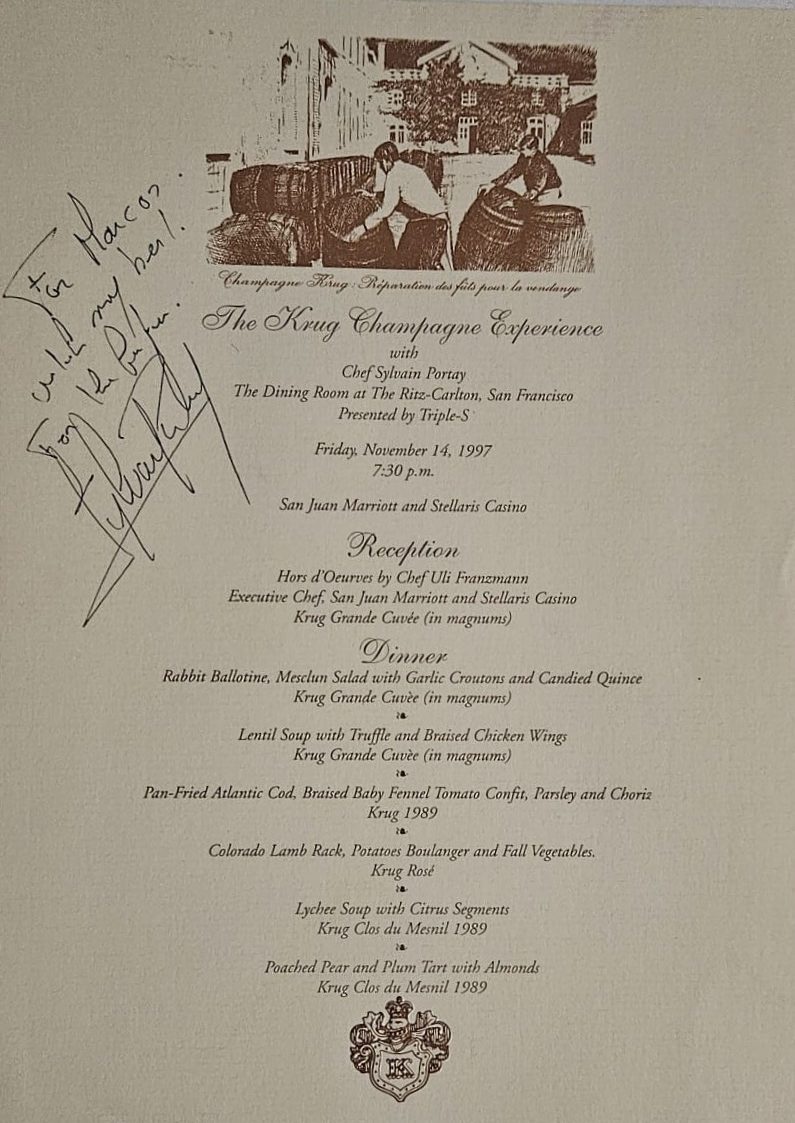 For Marcos.
with my best.
for the future.
Sylvain Portay
Champagne Krug : Réparation des fûts pour la vendange
The Krug Champagne Experience
with
Chef Sylvain Portay
The Dining Room at The Ritz-Carlton, San Francisco
Presented by Triple-S
Friday, November 14, 1997
7:30 p.m.
San Juan Marriott and Stellaris Casino
Reception
Hors d'Oeurves by Chef Uli Franzmann
Executive Chef, San Juan Marriott and Stellaris Casino
Krug Grande Cuvée (in magnums)
Dinner
Rabbit Ballotine, Mesclun Salad with Garlic Croutons and Candied Quince
Krug Grande Cuvèe (in magnums)
Lentil Soup with Truffle and Braised Chicken Wings
Krug Grande Cuvèe (in magnums)
Pan-Fried Atlantic Cod, Braised Baby Fennel Tomato Confit, Parsley and Choriz
Krug 1989
Colorado Lamb Rack, Potatoes Boulanger and Fall Vegetables.
Krug Rosé
Lychee Soup with Citrus Segments
Krug Clos du Mesnil 1989
Poached Pear and Plum Tart with Almonds
Krug Clos du Mesnil 1989
K